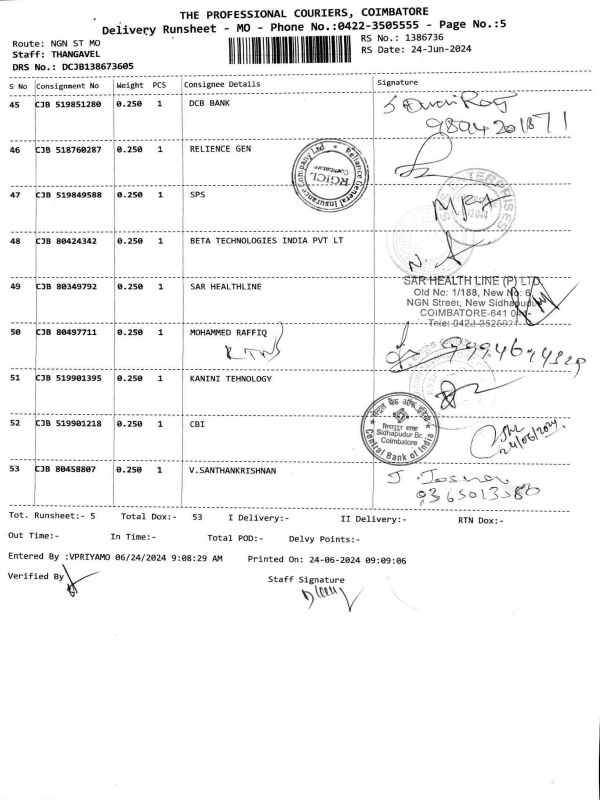 THE PROFESSIONAL COURIERS, COIMBATORE
Delivery Runsheet - MO - Phone No.:0422-3505555 - Page No.:5
Route: NGN ST MO
Staff: THANGAVEL
DRS No.: DCJB138673605
RS No.: 1386736
RS Date: 24-Jun-2024
S No Consignment No Weight PCS Consignee Details Signature
45 CJB 519851280 0.250 1 DCB BANK
46 CJB 518760287 0.250 1 RELIENCE GEN
Reliance General Insurance Company Ltd
RGICL
Coimbatore
47 CJB 519849588 0.250 1 SPS
48 CJB 80424342 0.250 1 BETA TECHNOLOGIES INDIA PVT LT
49 CJB 80349792 0.250 1 SAR HEALTHLINE
SAR HEALTH LINE (P) LTD.
Old No: 1/188, New No: 6
NGN Street, New Sidhapudur
COIMBATORE-641 044
50 CJB 80497711 0.250 1 MOHAMMED RAFFIQ
51 CJB 519901395 0.250 1 KANINI TEHNOLOGY
52 CJB 519901218 0.250 1 CBI
Sidhapudur Br.
Coimbatore
Central Bank of India
24/06/2024
53 CJB 80458807 0.250 1 V.SANTHANKRISHNAN
Tot. Runsheet:- 5 Total Dox:- 53 I Delivery:- II Delivery:- RTN Dox:-
Out Time:- In Time:- Total POD:- Delvy Points:-
Entered By :VPRIYAMO 06/24/2024 9:08:29 AM Printed On: 24-06-2024 09:09:06
Verified By
Staff Signature